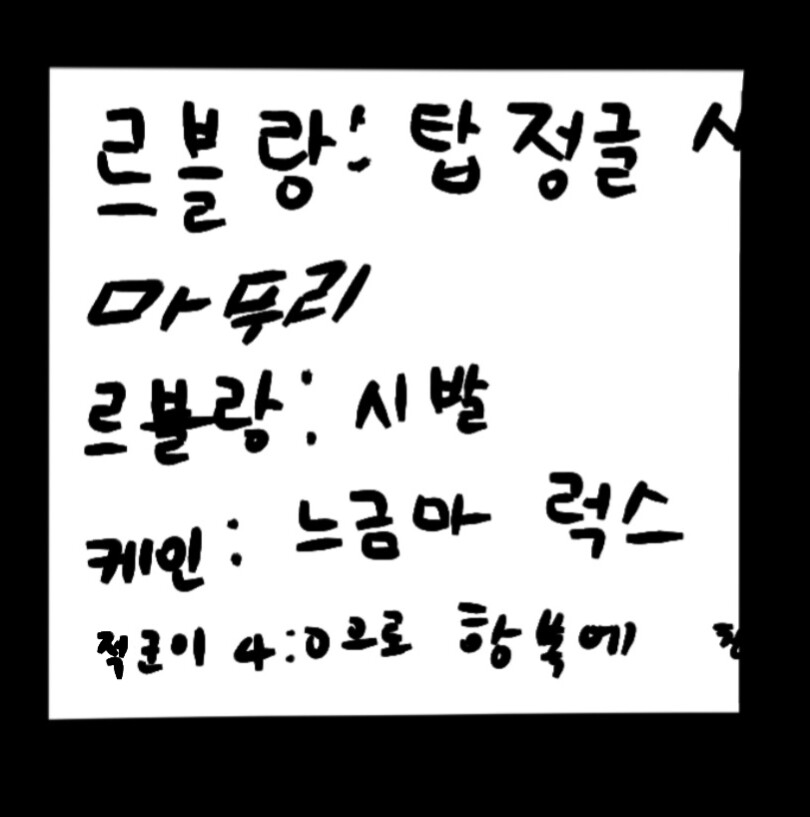 르블랑: 탑 정글
마무리
르블랑: 시발
케인: 느금마 럭스
적군이 4:0으로 항복에